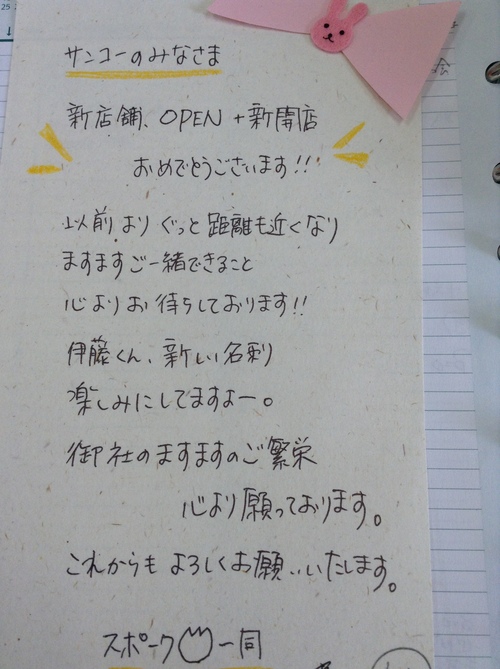 サンコーのみなさま
新店舗、OPEN+新開店
おめでとうございます!!
以前より ぐっと距離も近くなり
ますますご一緒できること
心よりお待ちしております!!
伊藤くん、新しい名刺
楽しみにしてますよー。
御社のますますのご繁栄
心より願っております。
これからも よろしくお願いいたします。
スポーク 一同